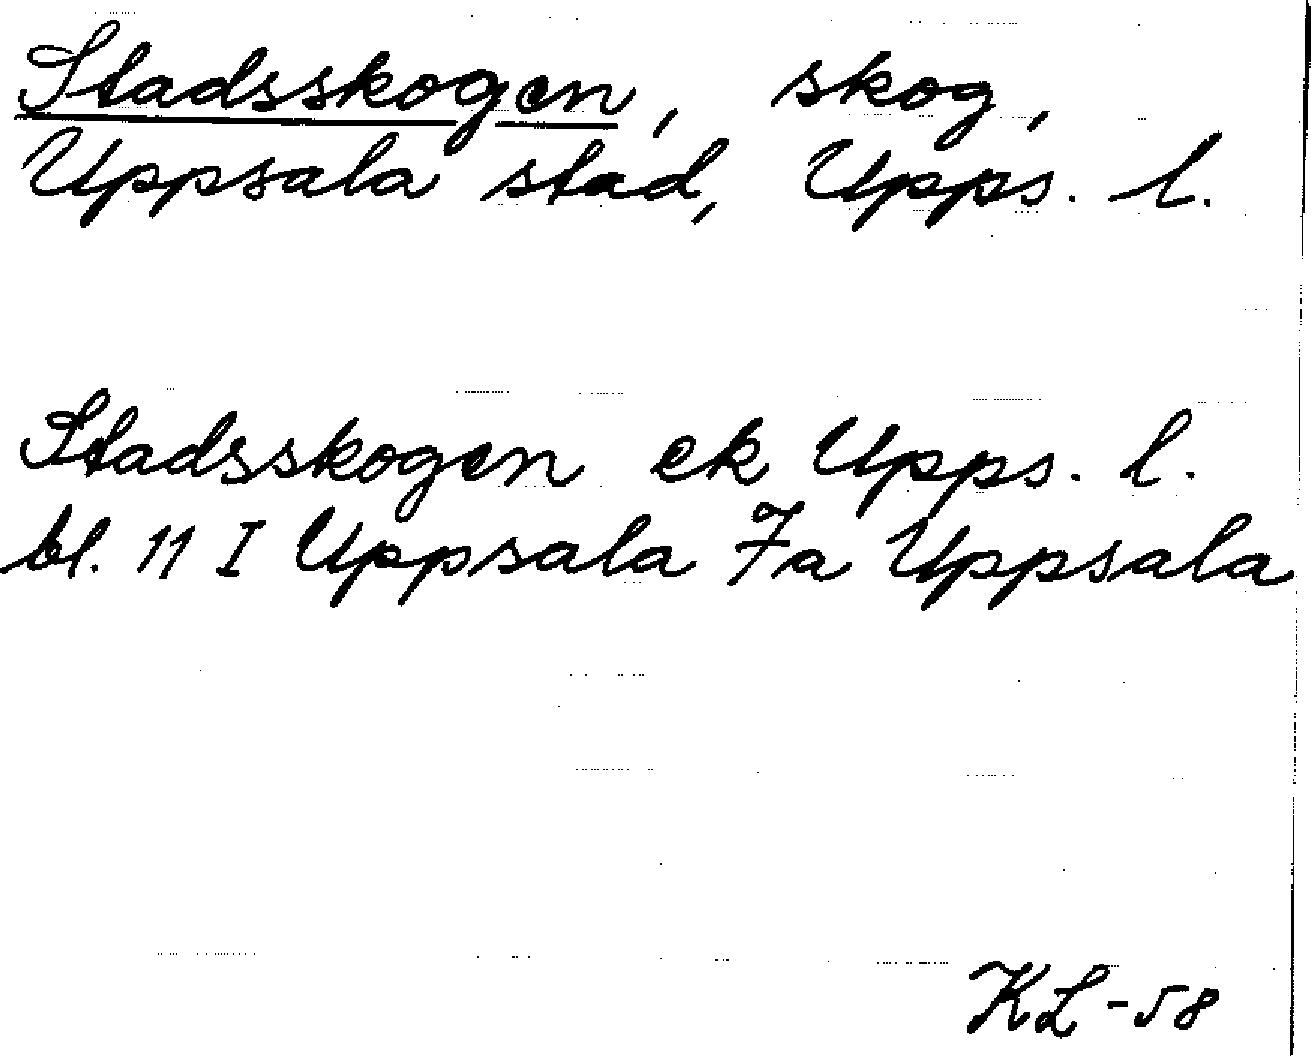 Stadsskogen, skog,
Uppsala stad, Upps. l.
Stadsskogen ek Upps. l.
bl. 11 I Uppsala 7a Uppsala
KL-58